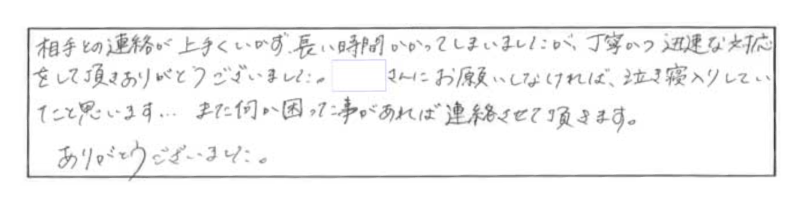 相手との連絡が上手くいかず、長い時間かかってしまいましたが、丁寧かつ迅速な対応
をして頂きありがとうございました。さんにお願いしなければ、泣き寝入りしてい
たと思います… また何か困った事があれば連絡させて頂きます。
ありがとうございました。